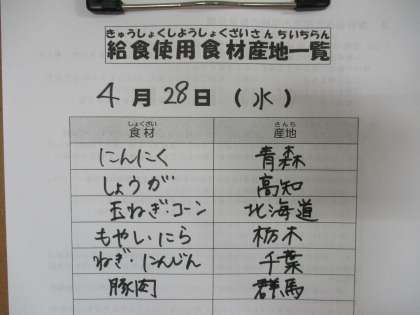 きゅうしょくしようしょくざいさんちいちらん
給食使用食材産地一覧
4月28日(水)
しょくざい さんち
食材 産地
にんにく 青森
しょうが 高知
玉ねぎ・コーン 北海道
もやし・にら 栃木
ねぎ・にんじん 千葉
豚肉 群馬